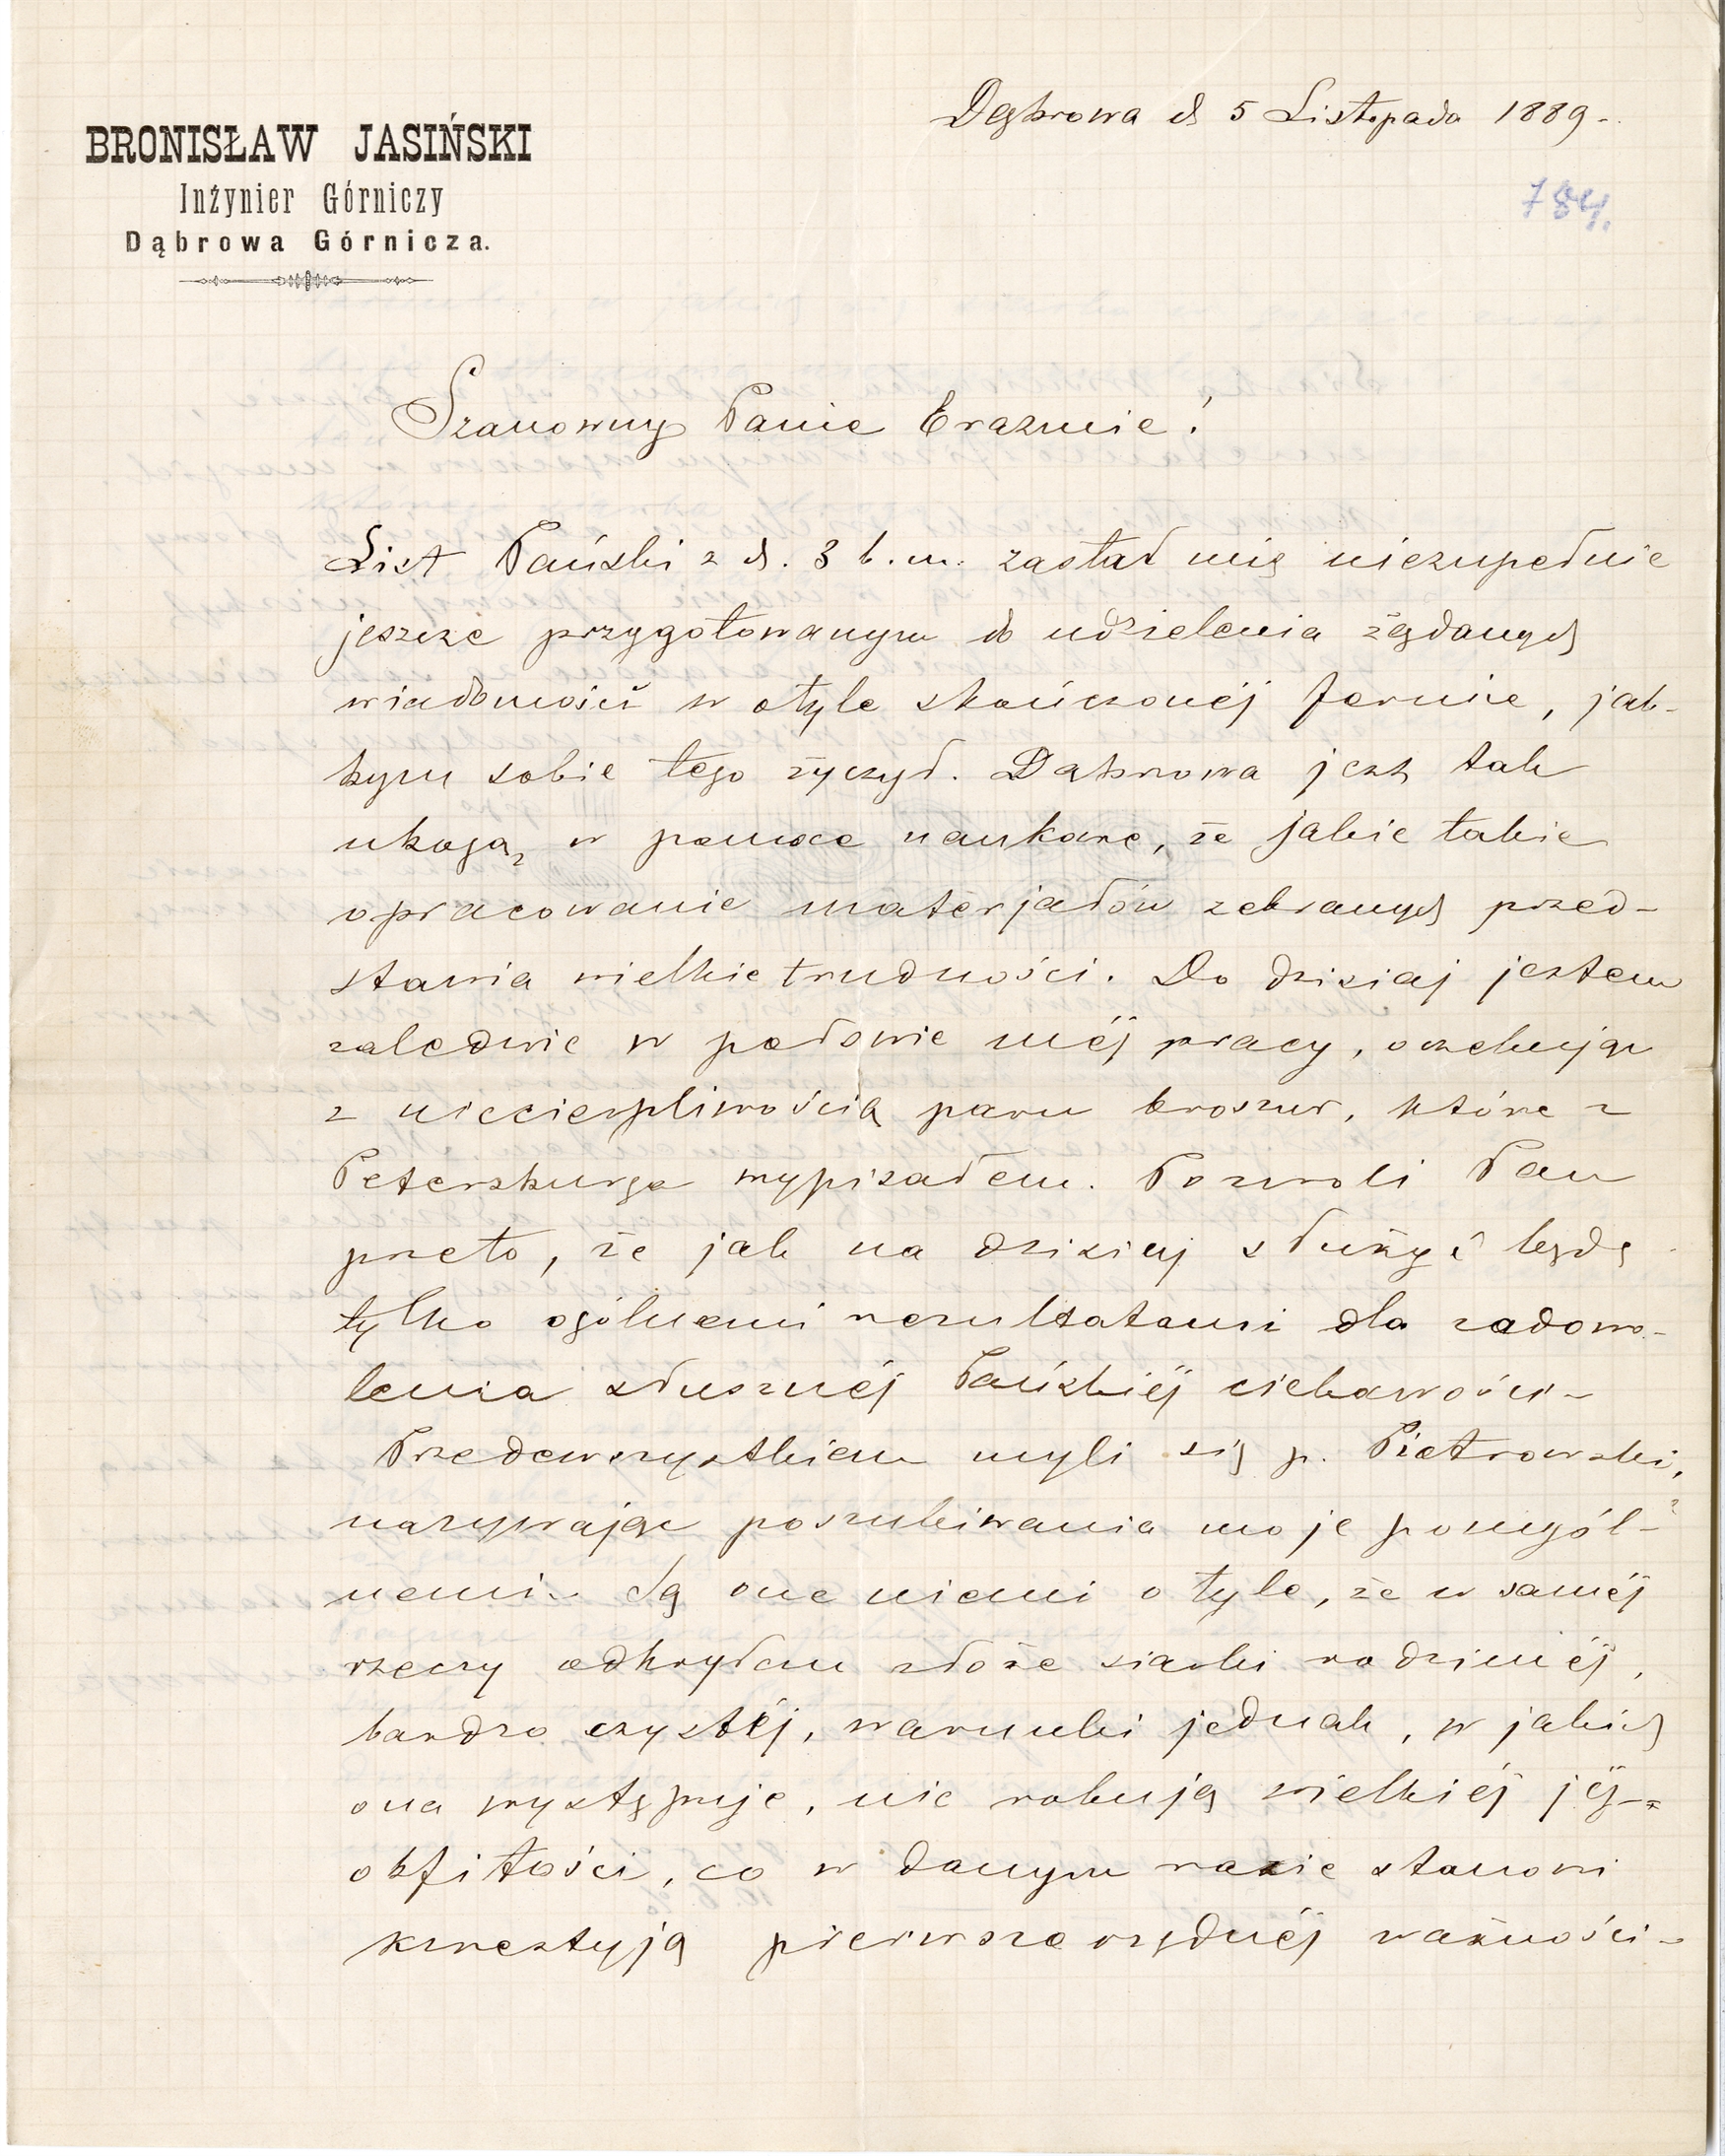 Dąbrowa d 5 Listopada 1889.
BRONISŁAW JASIŃSKI
Inżynier Górniczy
Dąbrowa Górnicza.
784.
Szanowny Panie Erazmie!
List Pański z d. 3 b.m. zastał mię niezupełnie
jeszcze przygotowanym do udzielenia żądanych
wiadomości w otyle skończonéj formie, jak-
bym sobie tego życzył. Dąbrowa jest tak
ubogą w pomoce naukowe, że jakie takie
opracowanie materjałów zebranych przed-
stawia wielkie trudności. Do dzisiaj jestem
zaledwie w połowie méj pracy, oczekując
z niecierpliwością paru broszur, które z
Petersburga wypisałem. Pozwoli Pan
przeto, że jak na dzisiaj służyć będę
tylko ogólnemi rezultatami dla zadowo-
lenia słusznéj Pańskiéj ciekawości.
Przedewszystkiem myli się p. Pietrowski,
nazywając poszukiwania moje pomyśl-
nemi. Są one niemi o tyle, że w saméj
rzeczy odkryłem złoże siarki rodziméj,
bardzo czystéj, warunki jednak, w jakich
ona występuje, nie rokują wielkiéj jéj
obfitości, co w danym razie stanowi
kwestyją pierwszorzędnéj ważności.